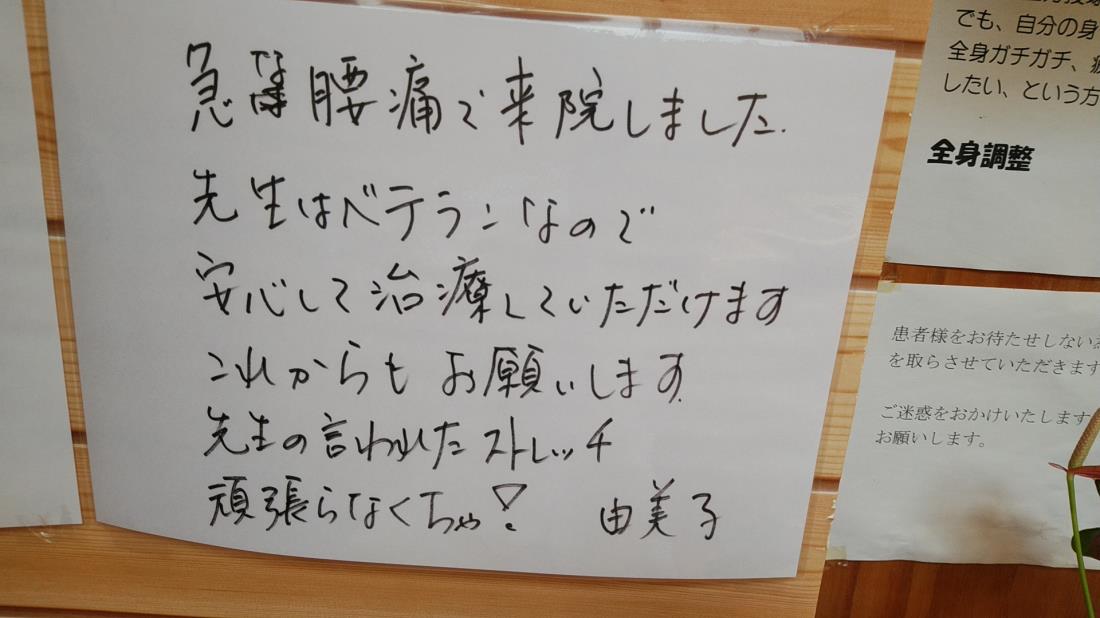 急な腰痛で来院しました.
先生はベテランなので
安心して治療していただけます
これからもお願いします.
先生の言われたストレッチ
頑張らなくちゃ!
由美子
でも、自分の身
全身ガチガチ、
したい、という方
全身調整
患者様をお待たせしない
を取らさせていただきます
ご迷惑をおかけいたします
お願いします。